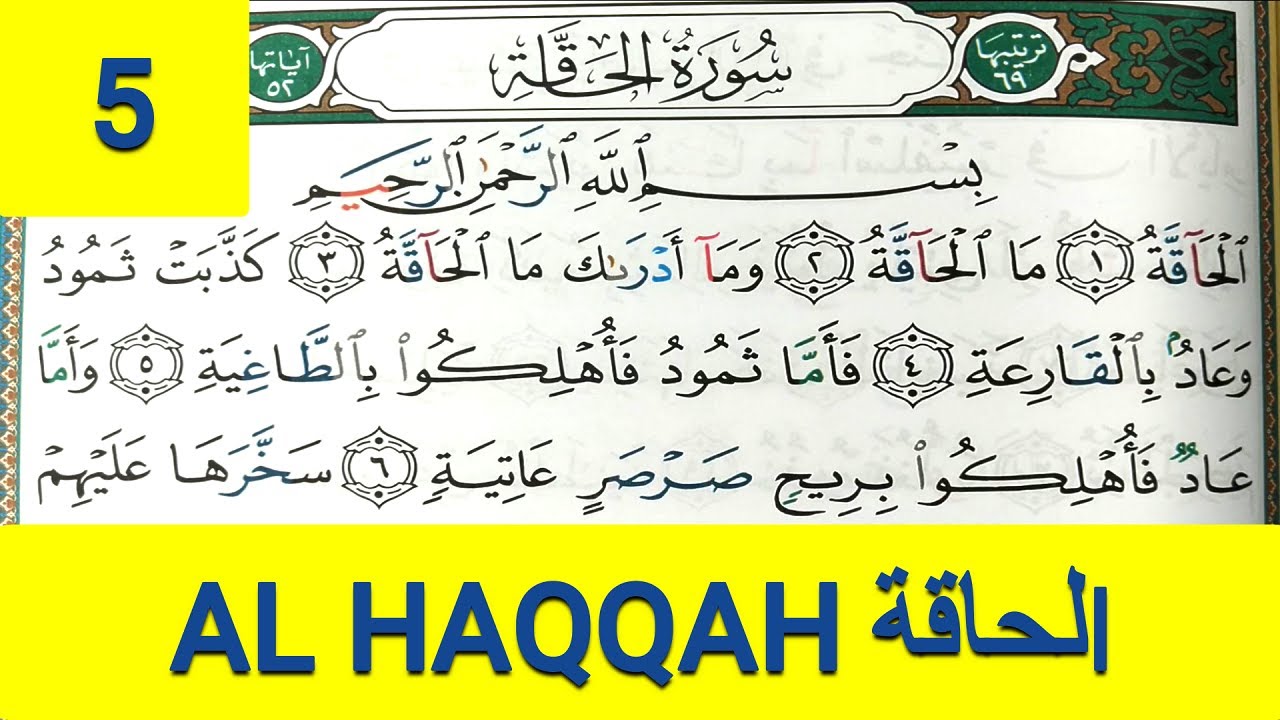 5
آياتها
٥٢
سُورَةُ الحَاقَّةِ
ترتيبها
٦٩
بِسْمِ ٱللَّهِ ٱلرَّحْمَٰنِ ٱلرَّحِيمِ
ٱلْحَآقَّةُ ١ مَا ٱلْحَآقَّةُ ٢ وَمَآ أَدْرَىٰكَ مَا ٱلْحَآقَّةُ ٣ كَذَّبَتْ ثَمُودُ
وَعَادُۢ بِٱلْقَارِعَةِ ٤ فَأَمَّا ثَمُودُ فَأُهْلِكُوا۟ بِٱلطَّاغِيَةِ ٥ وَأَمَّا
عَادٌ فَأُهْلِكُوا۟ بِرِيحٍ صَرْصَرٍ عَاتِيَةٍ ٦ سَخَّرَهَا عَلَيْهِمْ
AL HAQQAH الحاقة